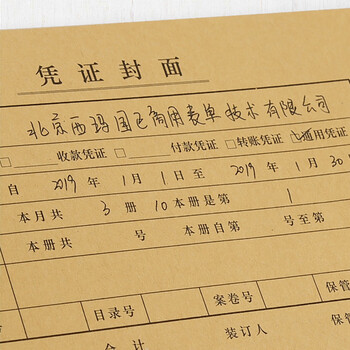 凭证封面
北京西玛国巴商用表单技术有限公司
□ 收款凭证 □ 付款凭证 □转账凭证 ☑通用凭证
自 2019 年 1 月 1 日至 2019 年 1 月 30
本月共 3 册 10本册是第 1
本册共 号 本册自第 号至第
号 目录号 案卷号 保管
会计 装订人 保管